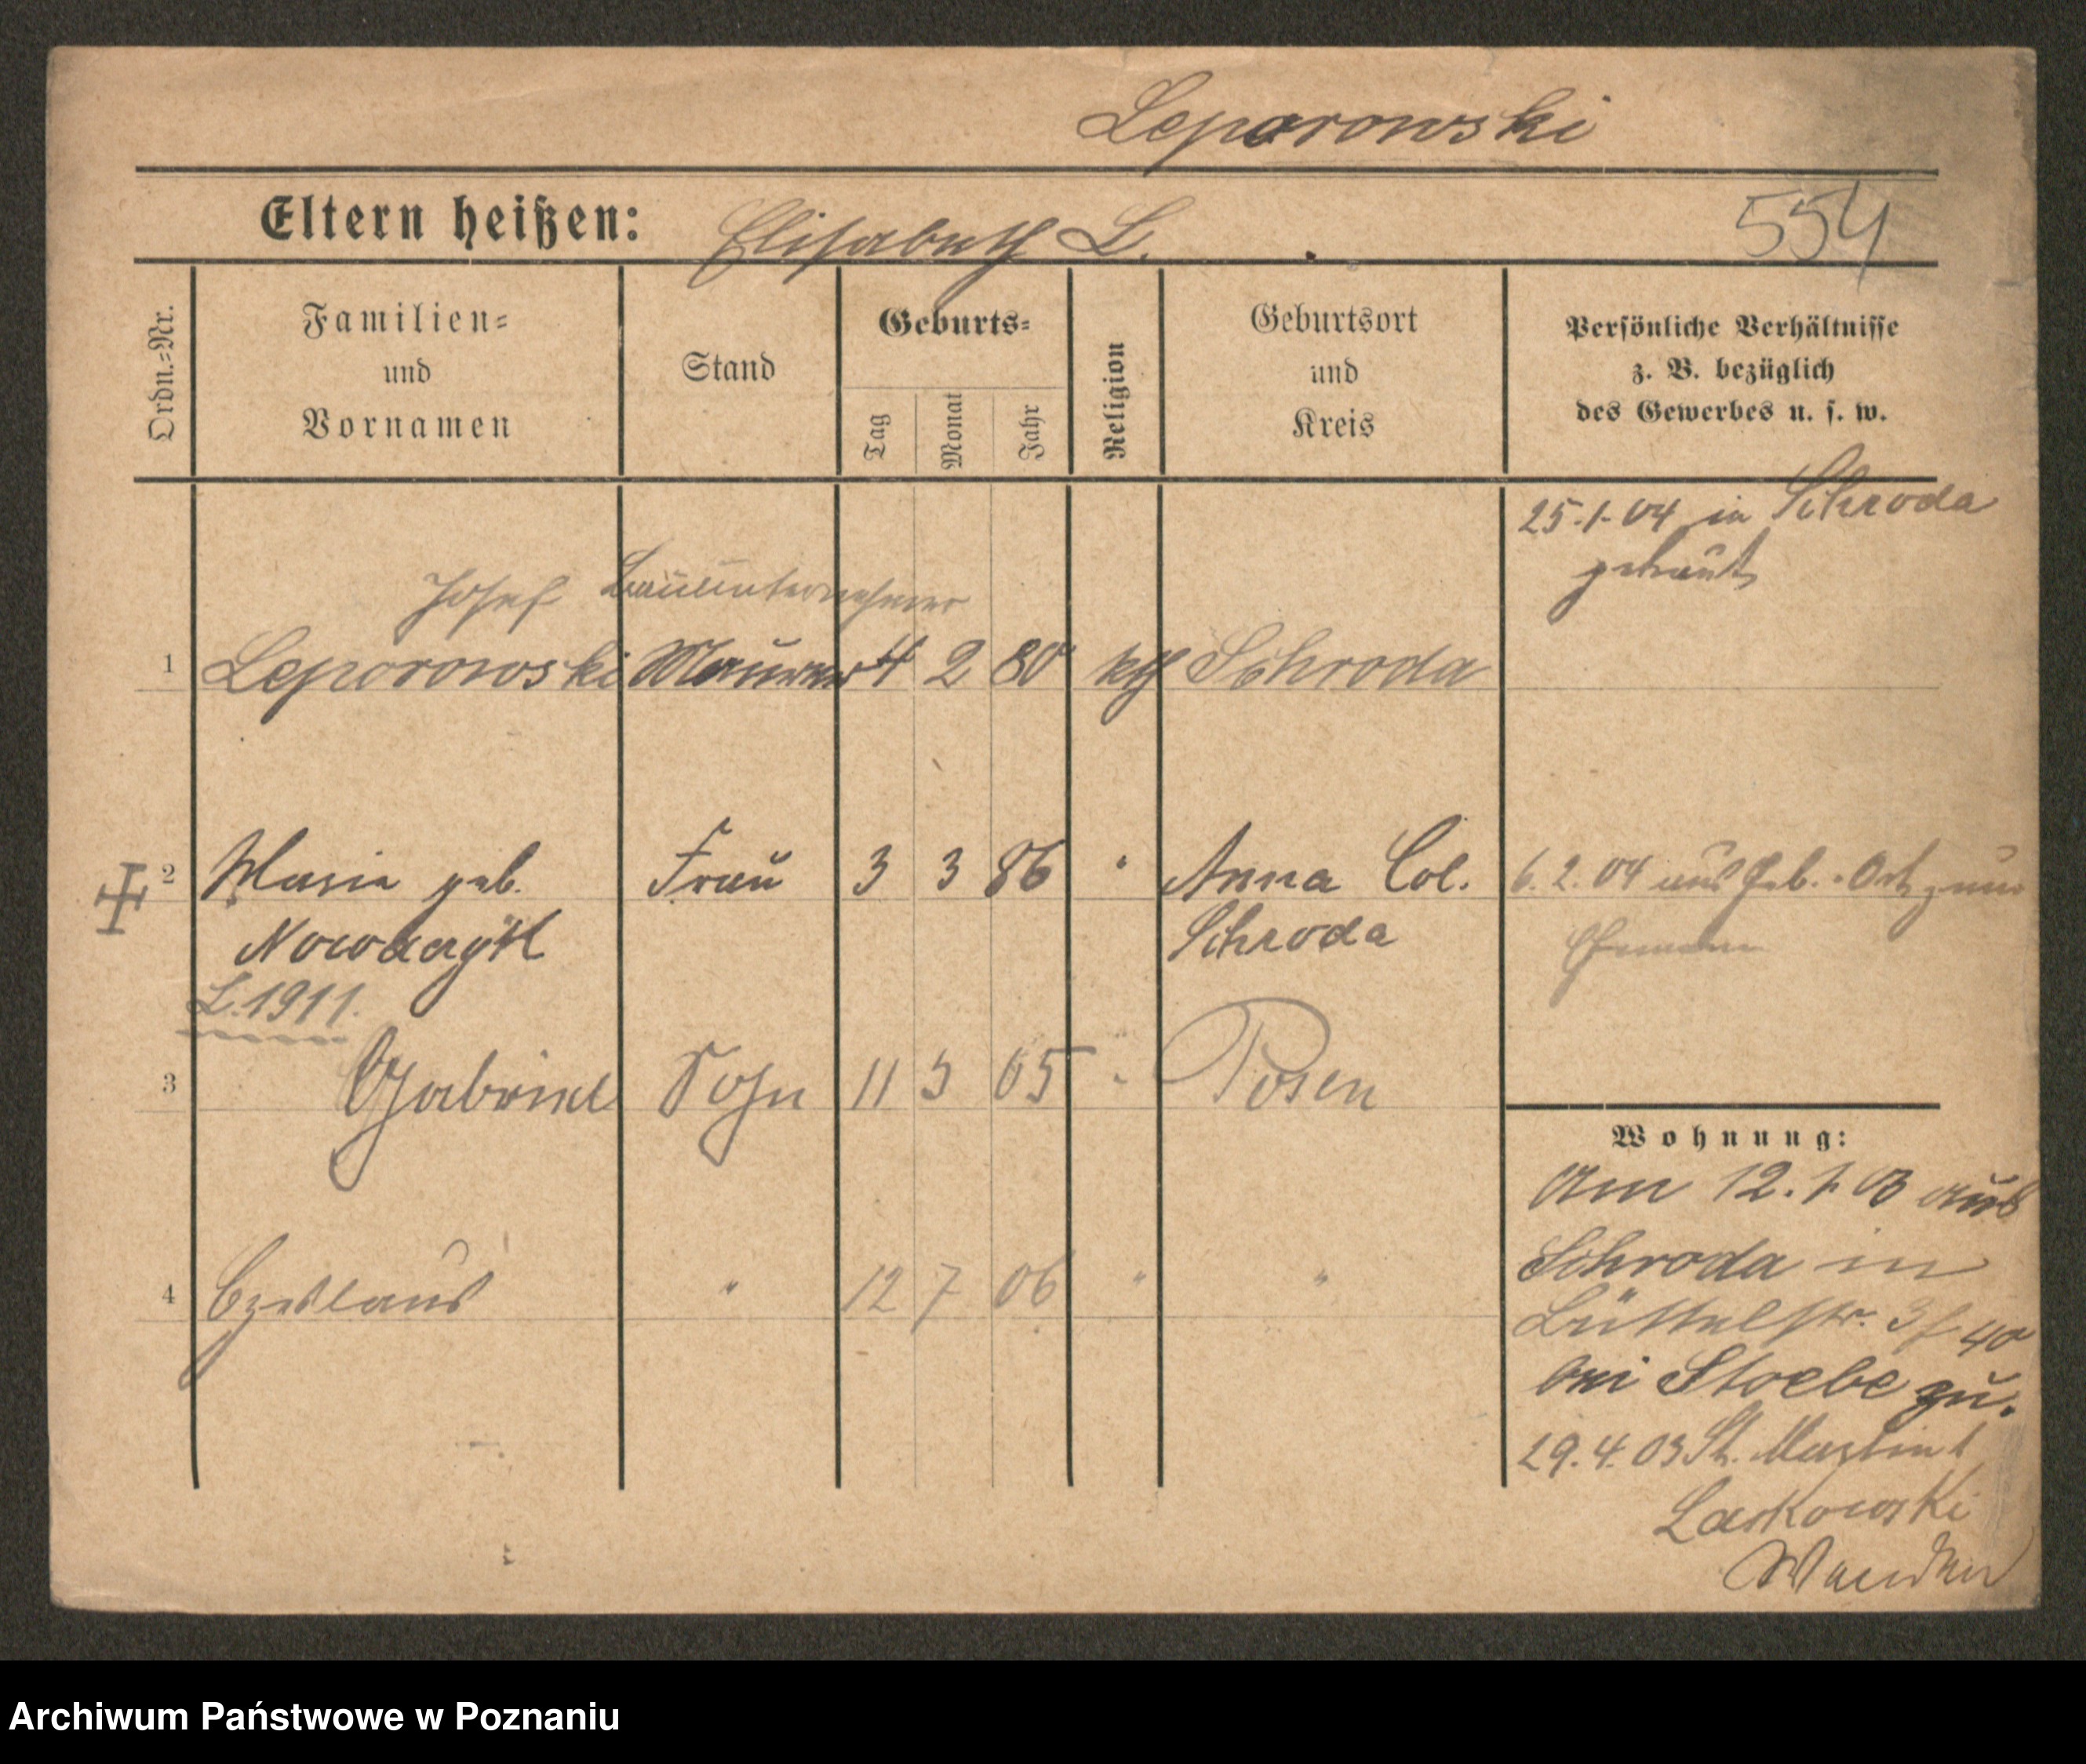 Leporowski
Eltern heißen: Elisabeth L.
554
Ordn.=Nr.
Familien=
und
Vornamen
Stand
Geburts=
Tag
Monat
Jahr
Religion
Geburtsort
und
Kreis
Persönliche Verhältnisse
z. B. bezüglich
des Gewerbes u. s. w.
25.1.04 in Schroda
getraut
Josef Bauunternehmer
1 Leporowski Maurer 4 2 80 kth Schroda
2 Maria geb. Frau 3 3 86 " Anna Col. 6.2.04 aus Geb.-Ort zum
Schroda Ehemann
L. 1911.
3 Gabriel Sohn 11 3 05 " Posen
4 Czeslaus " 12 7 06 " "
Wohnung:
Am 12.1.03 aus
Schroda in
Büttelstr.
bei Stoebe zu.
29.4.03 St. Martin
Laskowski
Archiwum Państwowe w Poznaniu